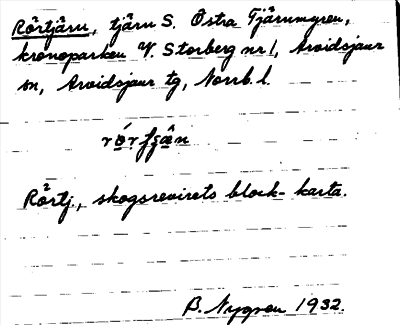 Rörtjärn, tjärn S. Östra Tjärnmyren,
kronoparken V. Storberg nr 1, Arvidsjaur
sn, Arvidsjaur tg, Norrb. l.
Rörtj., skogsrevirets block-karta.
B. Nygren 1932.